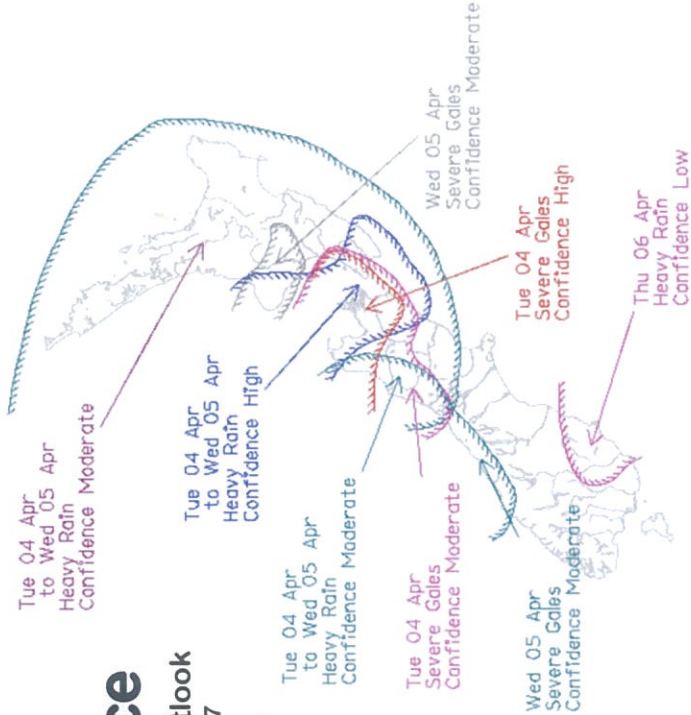 ce
tlook
7
Tue 04 Apr
to Wed 05 Apr
Heavy Rain
Confidence Moderate
Tue 04 Apr
to Wed 05 Apr
Heavy Rain
Confidence High
Tue 04 Apr
to Wed 05 Apr
Heavy Rain
Confidence Moderate
Tue 04 Apr
Severe Gales
Confidence Moderate
Wed 05 Apr
Severe Gales
Confidence Moderate
Wed 05 Apr
Severe Gales
Confidence Moderate
Tue 04 Apr
Severe Gales
Confidence High
Thu 06 Apr
Heavy Rain
Confidence Low